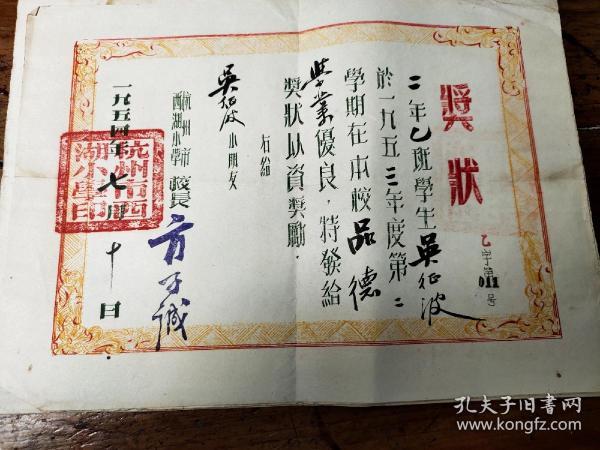 獎狀
乙字第011号
二年乙班學生吴征波
於一九五三年度第二
學期在本校品德
學業優良，特發給
獎狀以資獎勵．
右給
吴征波小朋友
杭州市西湖小學校長方子誠
一九五四年七月十日
杭州市西湖小學印
孔夫子旧書网
www.kongfz.com